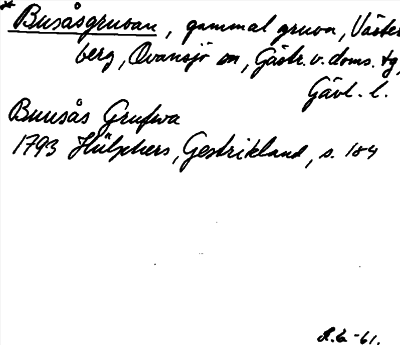 * Busåsgruvan, gammal gruva, Väster
berg, Ovansjö sn, Gästr. v. doms. tg,
Gävl. l.
Buusås Grufwa
1793 Hülphers, Gestrikland, s. 184
S.E. -61.